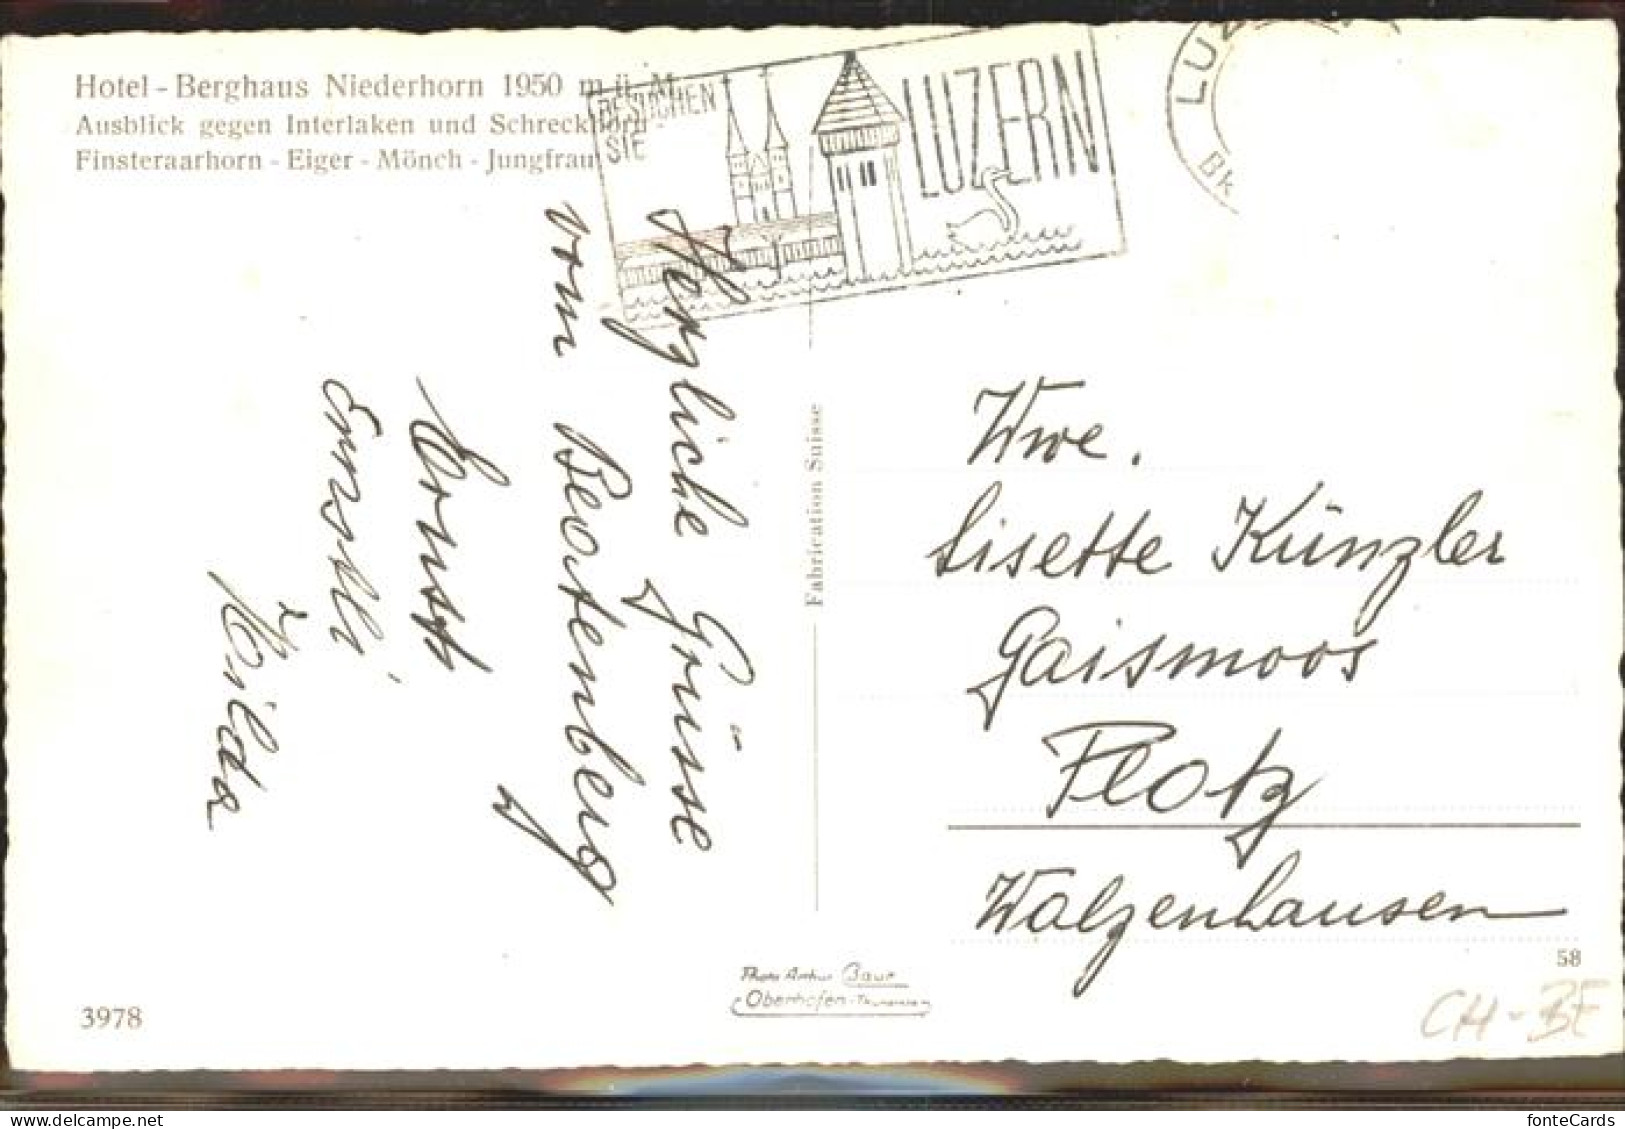 Hotel - Berghaus Niederhorn 1950 m ü. M.
Ausblick gegen Interlaken und Schreckhorn
Finsteraarhorn - Eiger - Mönch - Jungfrau
BESUCHEN
SIE
LUZERN
LUZ
Herzliche Grüsse
vom Beatenberg
Ernst
Ernstli
Hilda
Fabrication Suisse
Wwe.
Lisette Künzler
Gaismoos
Platz
Walzenhausen
58
Photo Arthur Baur
Oberhofen-Thunersee
3978
CH-BE
www.delcampe.net
fonteCards